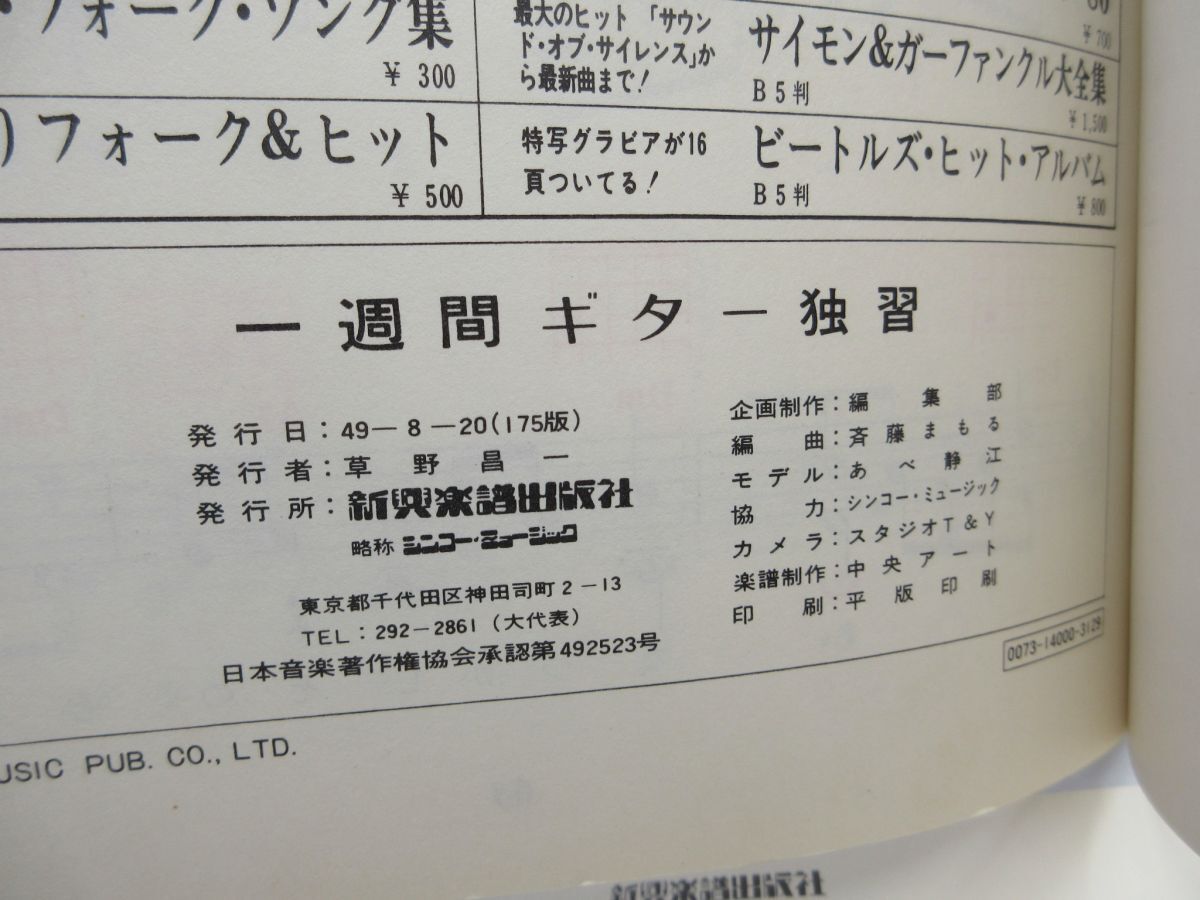 ・フォーク・ソング集
¥ 300
) フォーク&ヒット
¥ 500
最大のヒット「サウン
ド・オブ・サイレンス」か
ら最新曲まで!
¥ 700
サイモン&ガーファンクル大全集
B5判
¥ 1,500
特写グラビアが16
頁ついてる!
ビートルズ・ヒット・アルバム
B5判
¥ 800
一週間ギター独習
発行日:49-8-20(175版)
発行者:草野昌一
発行所:新興楽譜出版社
略称 シンコー・ミュージック
東京都千代田区神田司町2-13
TEL:292-2861(大代表)
日本音楽著作権協会承認第492523号
企画制作:編集部
編曲:斉藤まもる
モデル:あべ静江
協力:シンコー・ミュージック
カメラ:スタジオT&Y
楽譜制作:中央アート
印刷:平版印刷
0073-14000-3129
USIC PUB. CO., LTD.
新興楽譜出版社